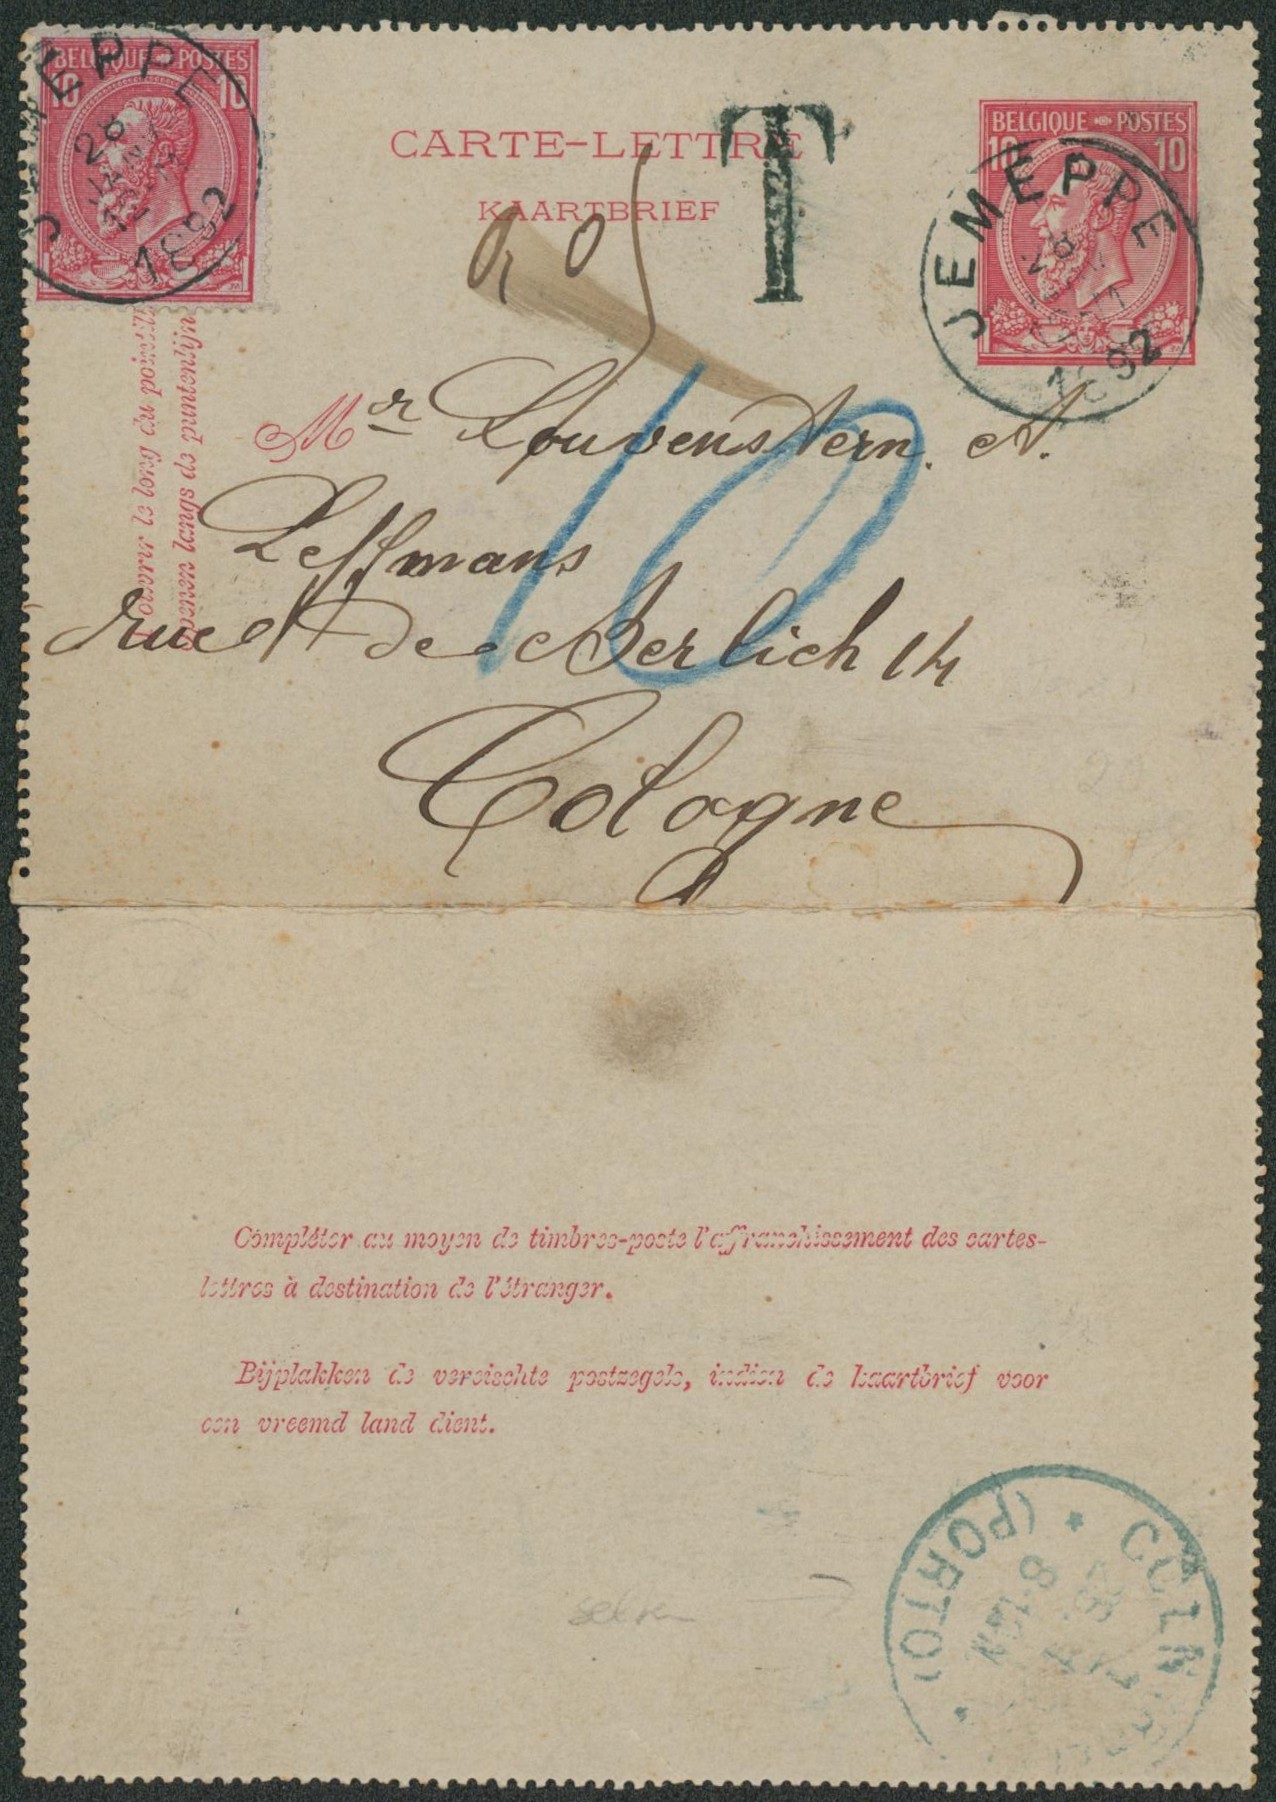 BELGIQUE POSTES
10 10
JEMEPPE
28
1892
CARTE-LETTRE
KAARTBRIEF
T
BELGIQUE POSTES
10 10
JEMEPPE
28
1892
05
10
Mr Louvenstern. A.
Leffmans
rue de Berlich 14
Cologne
ouvrir le long du pointill
openen langs de puntenlijn
Compléter au moyen de timbres-poste l'affranchissement des cartes-
lettres à destination de l'étranger.
Bijplakken de vereischte postzegels, indien de kaartbrief voor
een vreemd land dient.
CÖLN
(PORTO)